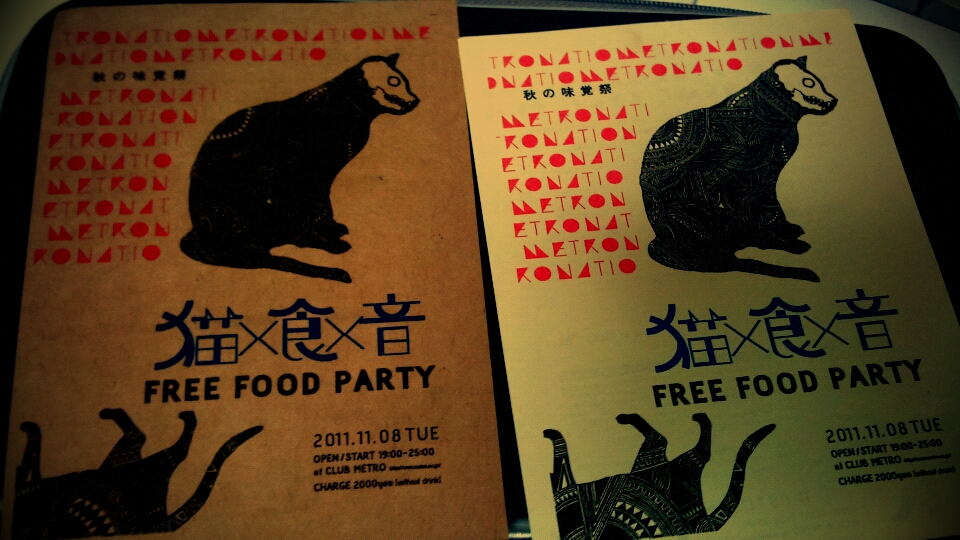 TRONATIOMETRONATIONME
DNATIOMETRONATIO
秋の味覚祭
METRONATI
RONATION
ETRONATI
RONATIO
METRON
ETRONAT
METRON
RONATIO
猫×食×音
FREE FOOD PARTY
2011.11.08 TUE
OPEN/START 19:00-25:00
at CLUB METRO
CHARGE 2000yen [without drink]
TRONATIOMETRONATIONME
DNATIOMETRONATIO
秋の味覚祭
METRONATI
RONATION
ETRONATI
RONATIO
METRON
ETRONAT
METRON
RONATIO
猫×食×音
FREE FOOD PARTY
2011.11.08 TUE
OPEN/START 19:00-25:00
at CLUB METRO
CHARGE 2000yen [without drink]